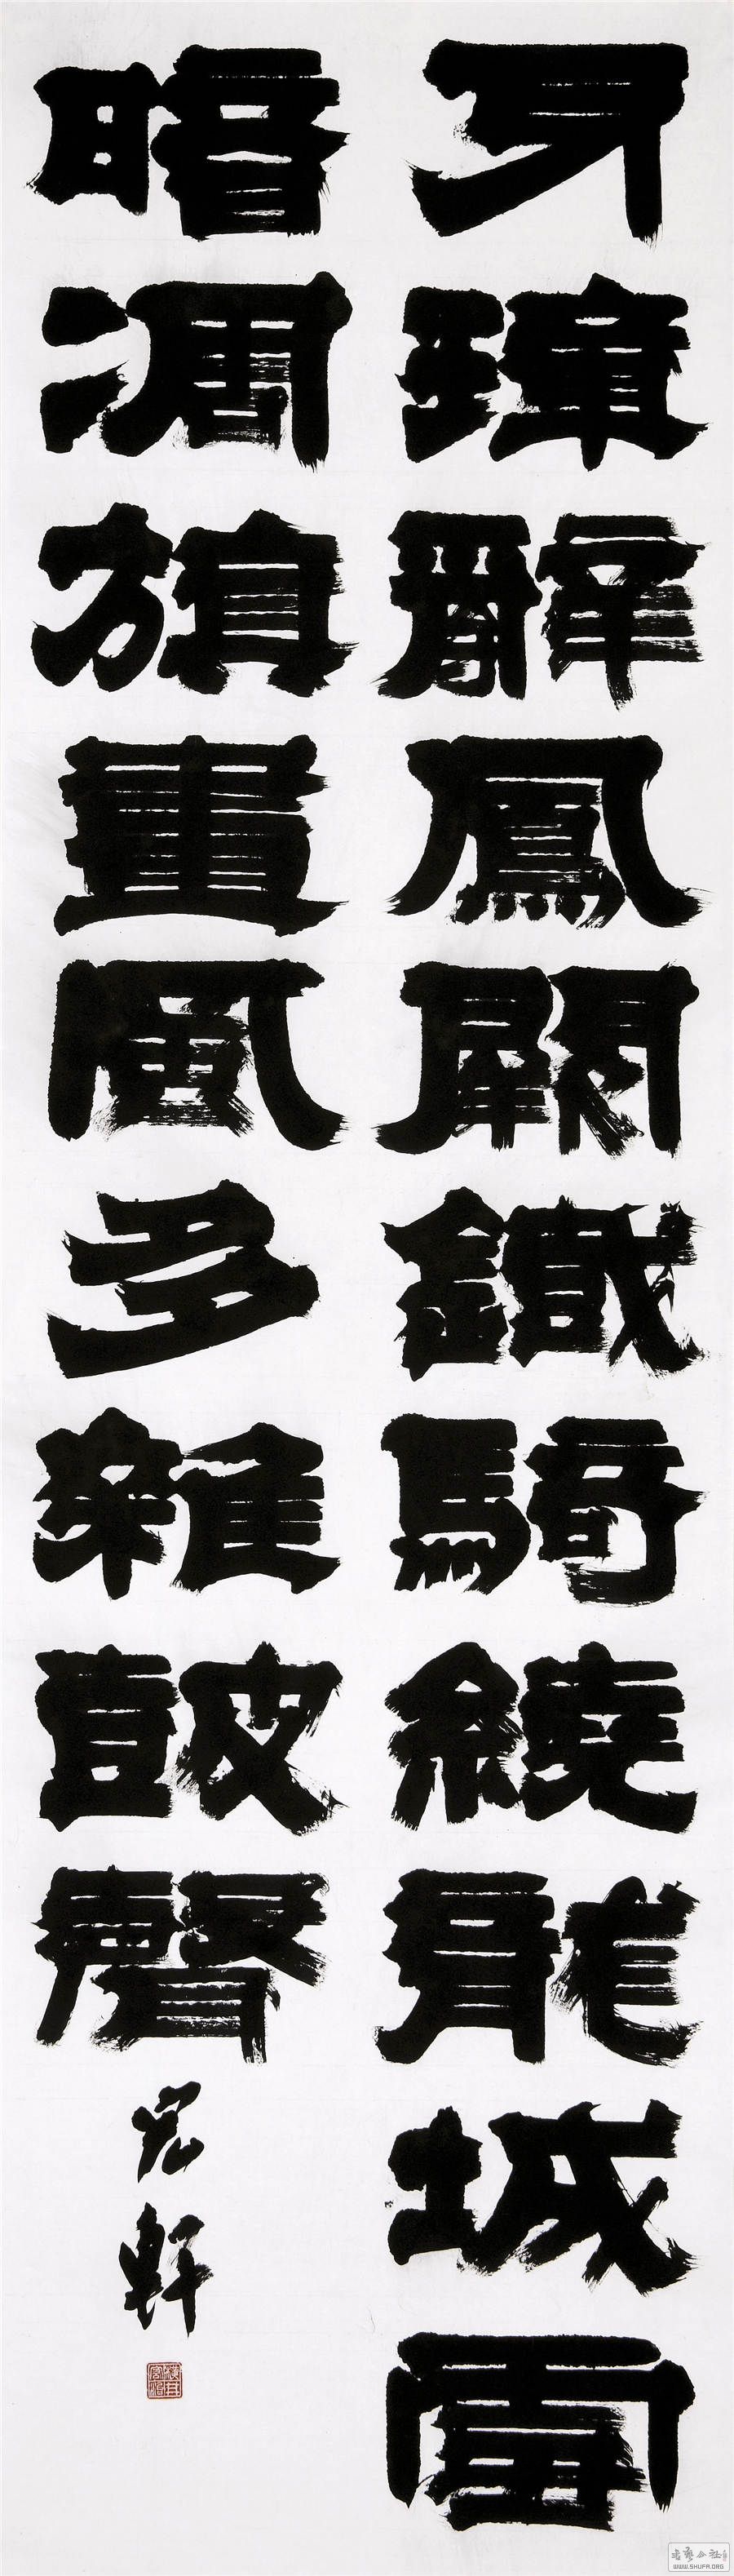 牙璋辭鳳闕鐵騎繞龍城雪
暗凋旗畫風多雜鼓聲
WWW.SHUFA.ORG